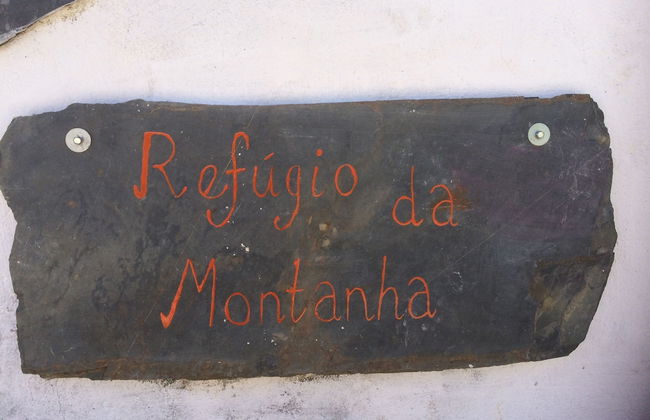 Refúgio da
Montanha